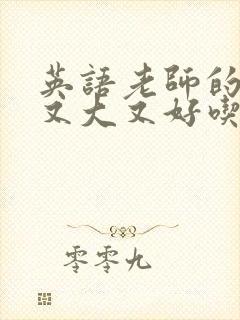 英語老師的
又大又好喫
零零九